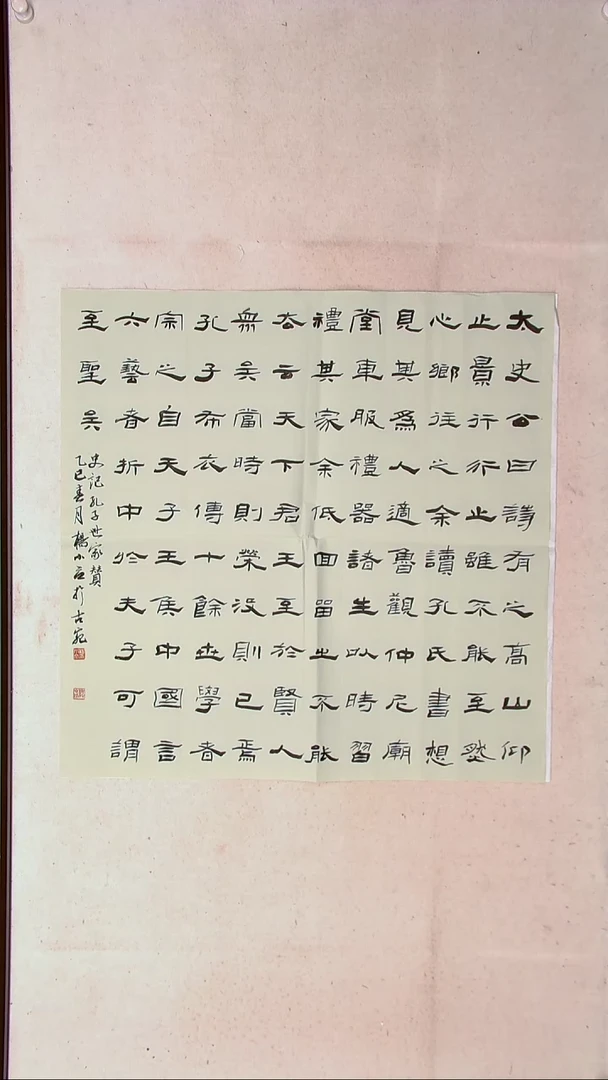 太史公曰詩有之高山仰
止景行行止雖不能至然
心鄉往之余讀孔氏書想
見其爲人適魯觀仲尼廟
堂車服禮器諸生以時習
禮其家余低回留之不能
去云天下君王至於賢人
眾矣當時則榮沒則已焉
孔子布衣傳十餘世學者
宗之自天子王侯中國言
六藝者折中於夫子可謂
至聖矣
史記孔子世家贊
乙巳春月楊小於古宛